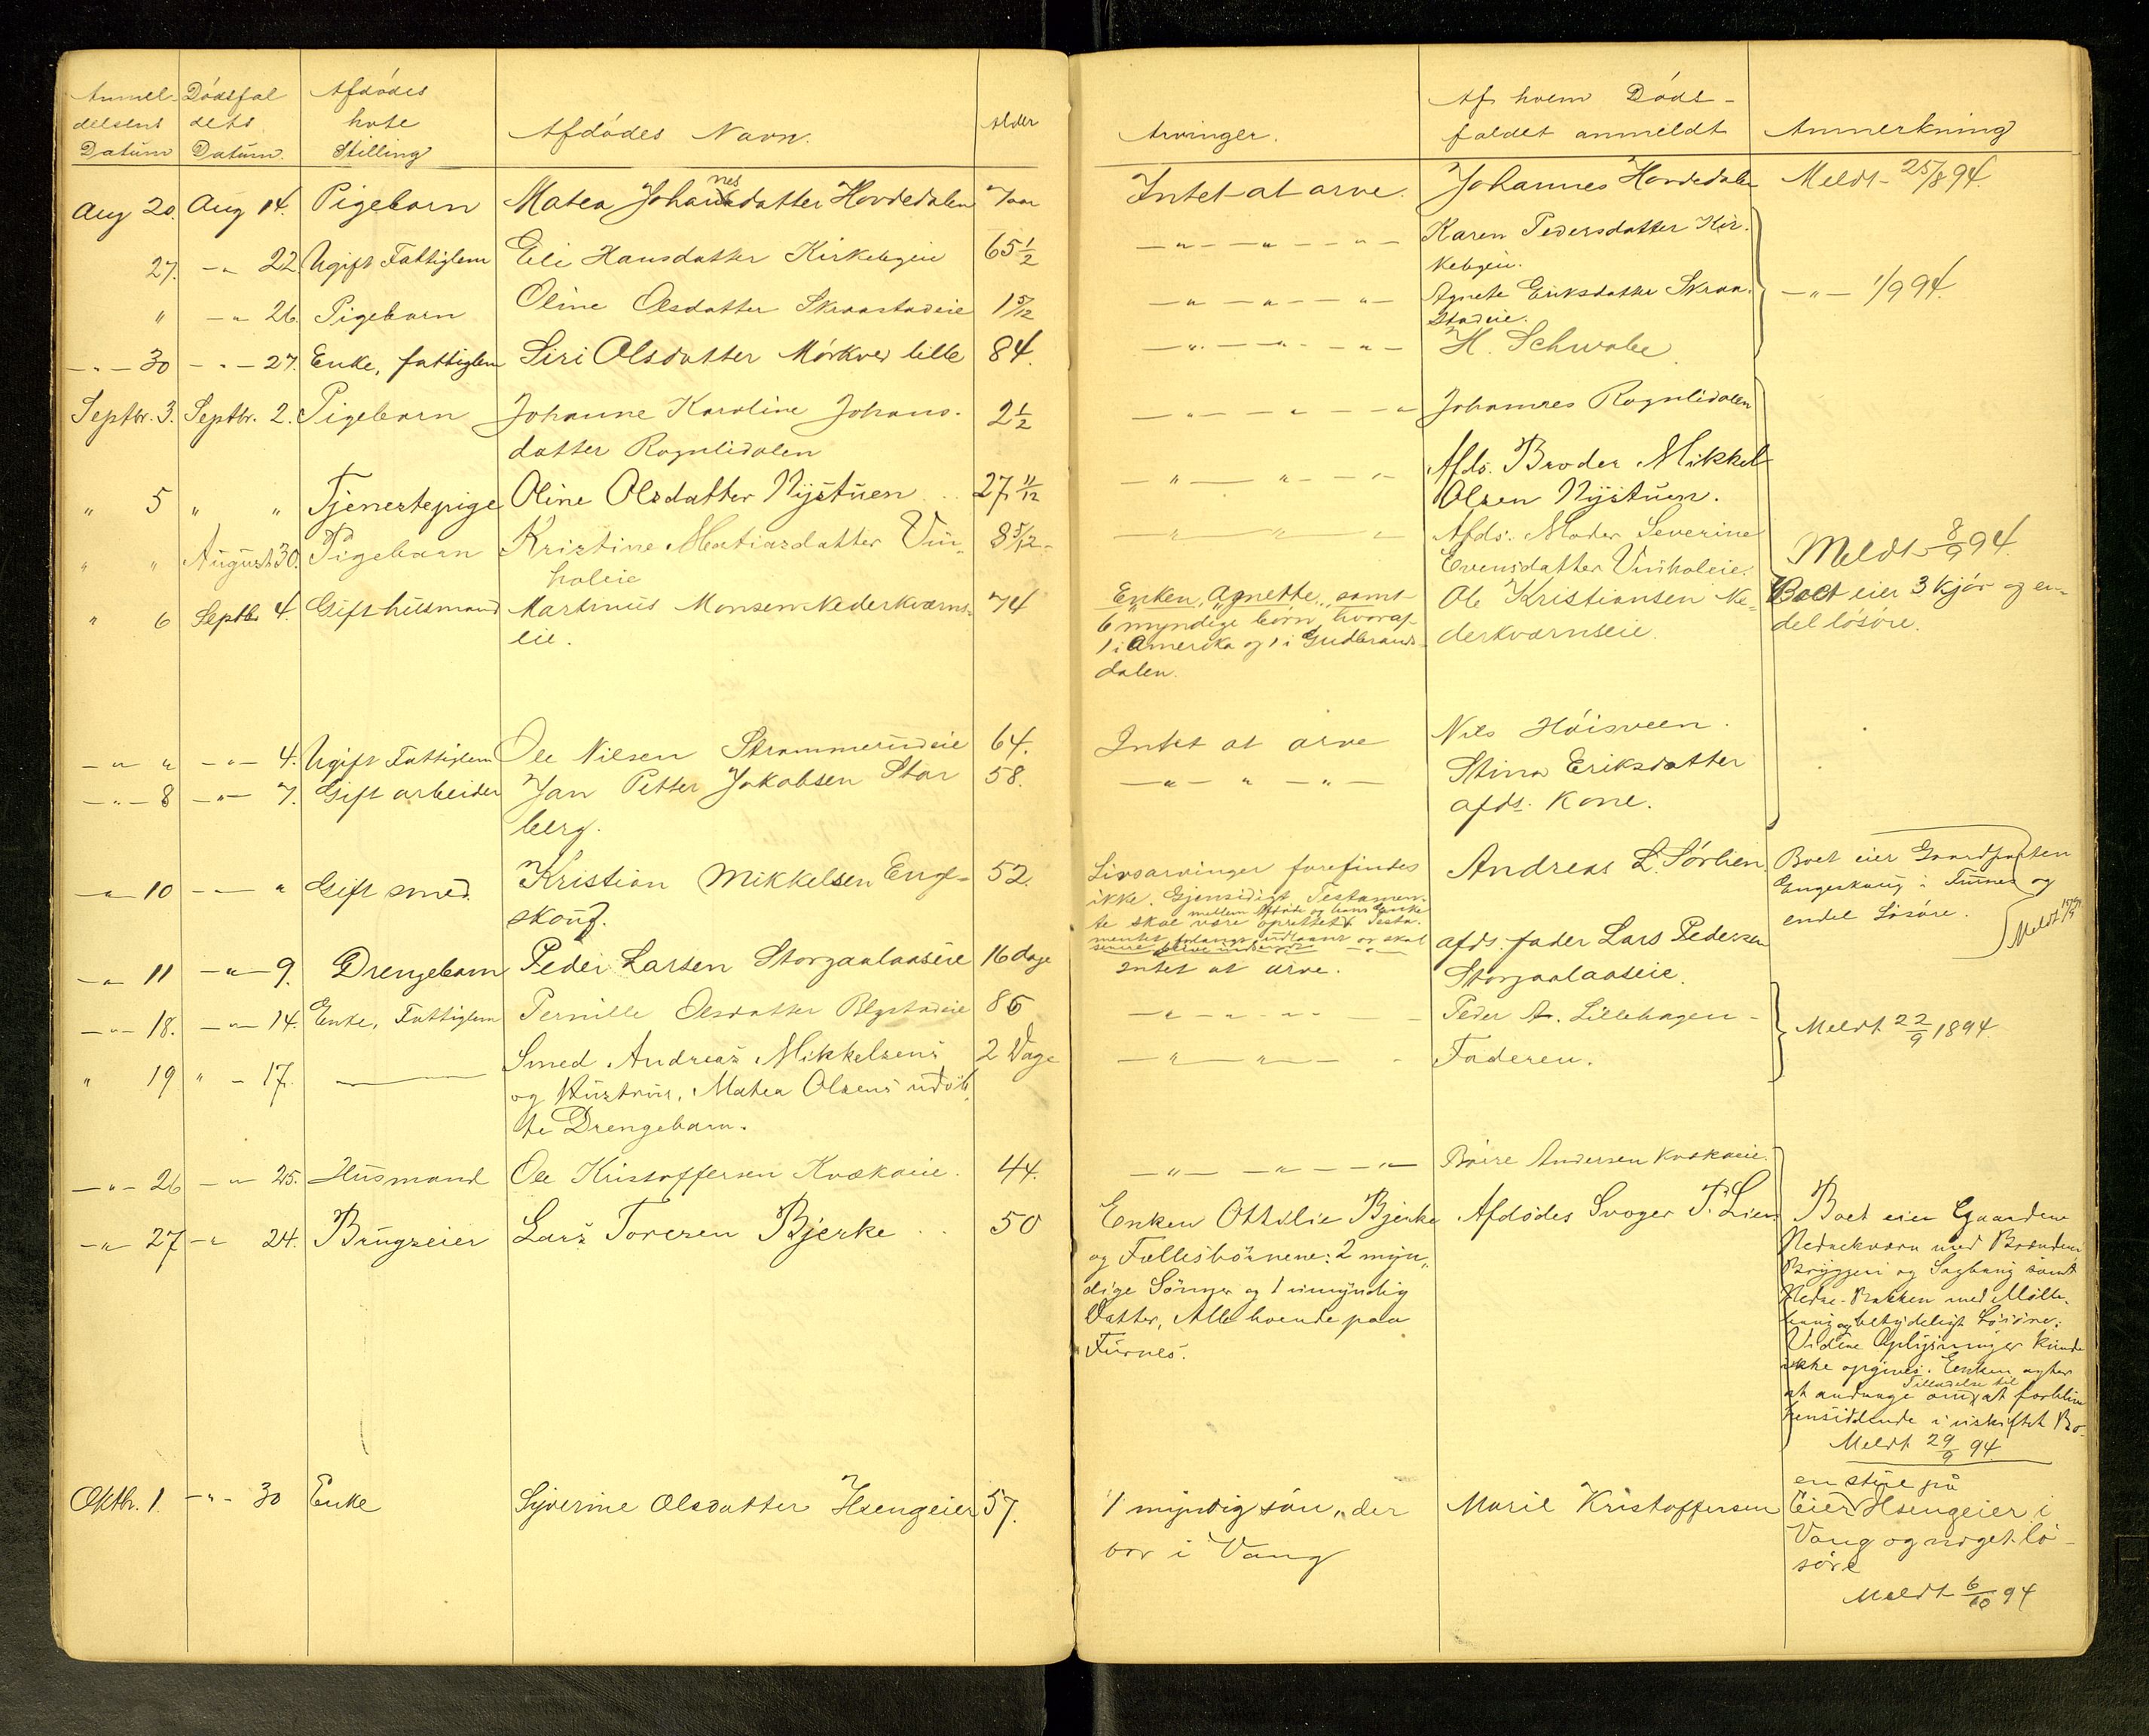 Anmel- Dödsfal Afdödes
delsens dets hvte
Datum Datum. Stilling Afdödes Navn. Alder
Arvinger. Af hvem Döds-
faldet anmeldt Anmerkning
Aug 20. Aug 14. Pigebarn Matea Johannesdatter Hovdedalen 7 aar Intet at arve. Johannes Hovdedalen Meldt 25/8 94.
27. -"- 22. Ugift Fattiglem Eli Hansdatter Kirkebyeie 65 1/2 -"-"-"- Karen Pedersdatter Kir-
kebyeie.
" -"- 26. Pigebarn Oline Olsdatter Skraastadeie 1 5/12 -"-"-"- Agnete Eriksdatter Skraa-
stadeie. -"- 1/9 94.
-"- 30 -"- 27. Enke, fattiglem Siri Olsdatter Mörkved lille 84. -"-"-"- H. Schwabe
Septbr. 3. Septbr. 2. Pigebarn Johanne Karoline Johans-
datter Rognlidalen 2 1/2 -"-"-"- Johannes Rognlidalen
" 5 " " Tjenestepige Oline Olsdatter Nystuen .. 27 11/12 -"-"-"- Afds. Broder Mikkel
Olsen Nystuen.
" " August 30. Pigebarn Kristine Matiasdatter Vin-
holeie 8 5/12 -"-"-"- Afds. Moder Severine
Evensdatter Vinholeie. Meldt 8/9 94.
" 6 Septbr 4. Gift husmand Martinus Monsen Nederkværns-
eie. 74 Enken, Agnette, samt
6 myndige börn, hvoraf
1 i Amerika og 1 i Gudbrands-
dalen. Ole Kristiansen Ne-
derkværnseie. Boet eier 3 kjör og en-
del lösöre.
-"- " -"- 4. Ugift Fattiglem Ole Nilsen Strammerudeie 64. Intet at arve Nils Höisveen.
-"- 8 -"- 7. Gift arbeider Jan Petter Jakobsen Stor
berg. 58. -"-"-"- Stina Eriksdatter
afds. Kone.
-"- 10 -"- " Gift smed. Kristian Mikkelsen Enge-
skoug. 52. Livsarvinger forefindes
ikke. Gjensidigt Testamen-
te skal være oprettet mellem Afdöde og hans Enke. Testa-
mentet og skal
senere
Andreas L. Sörlien. Boet eier Gaardparten
Engeskoug i Furnes og
endel Lösöre. Meldt
-"- 11 -"- 9. Drengebarn Peder Larsen Storgaalaaseie 16 dage Intet at arve. afds. fader Lars Pedersen
Storgaalaaseie.
-"- 18. -"- 14. Enke, Fattiglem Pernille Olsdatter Blystadeie 86 -"-"-"- Peder A. Lillehagen Meldt 22/9 1894.
" 19 " - 17. Smed Andreas Mikkelsens
og Hustru, Matea Olsens udöb-
te Drengebarn. 2 Dage -"-"- Faderen.
-"- 26 -"- 25. Husmand Ole Kristoffersen Kvækaeie. 44. -"-"-"- Börre Andersen Kvækaeie.
-"- 27 -"- 24. Brugseier Lars Toresen Bjerke .. 50 Enken Ottilie Bjerke
og Fællesbörnene: 2 myn-
dige Sönner og 1 umyndig
Datter, Alle boende paa
Furnes. Afdödes Svoger P. Lien Boet eier Gaardene
Nedrekværn med Brænderi
Bryggeri og Sagbrug samt
Nedre-Bakken med Mölle-
brug og betydeligt Lösöre.
Videre Oplysninger kunde
ikke opgives. Enken agter
at andrage om Tilladelse til at forblive
hensiddende i uskiftet Bo.
Meldt 29/9 94.
Oktbr. 1. -"- 30 Enke Syverine Olsdatter Hsengeier 57. 1 myndig sön, der
bor i Vang Marie Kristoffersen Eier en stue på Hsengeier i
Vang og noget lö-
söre
Meldt 6/10 94